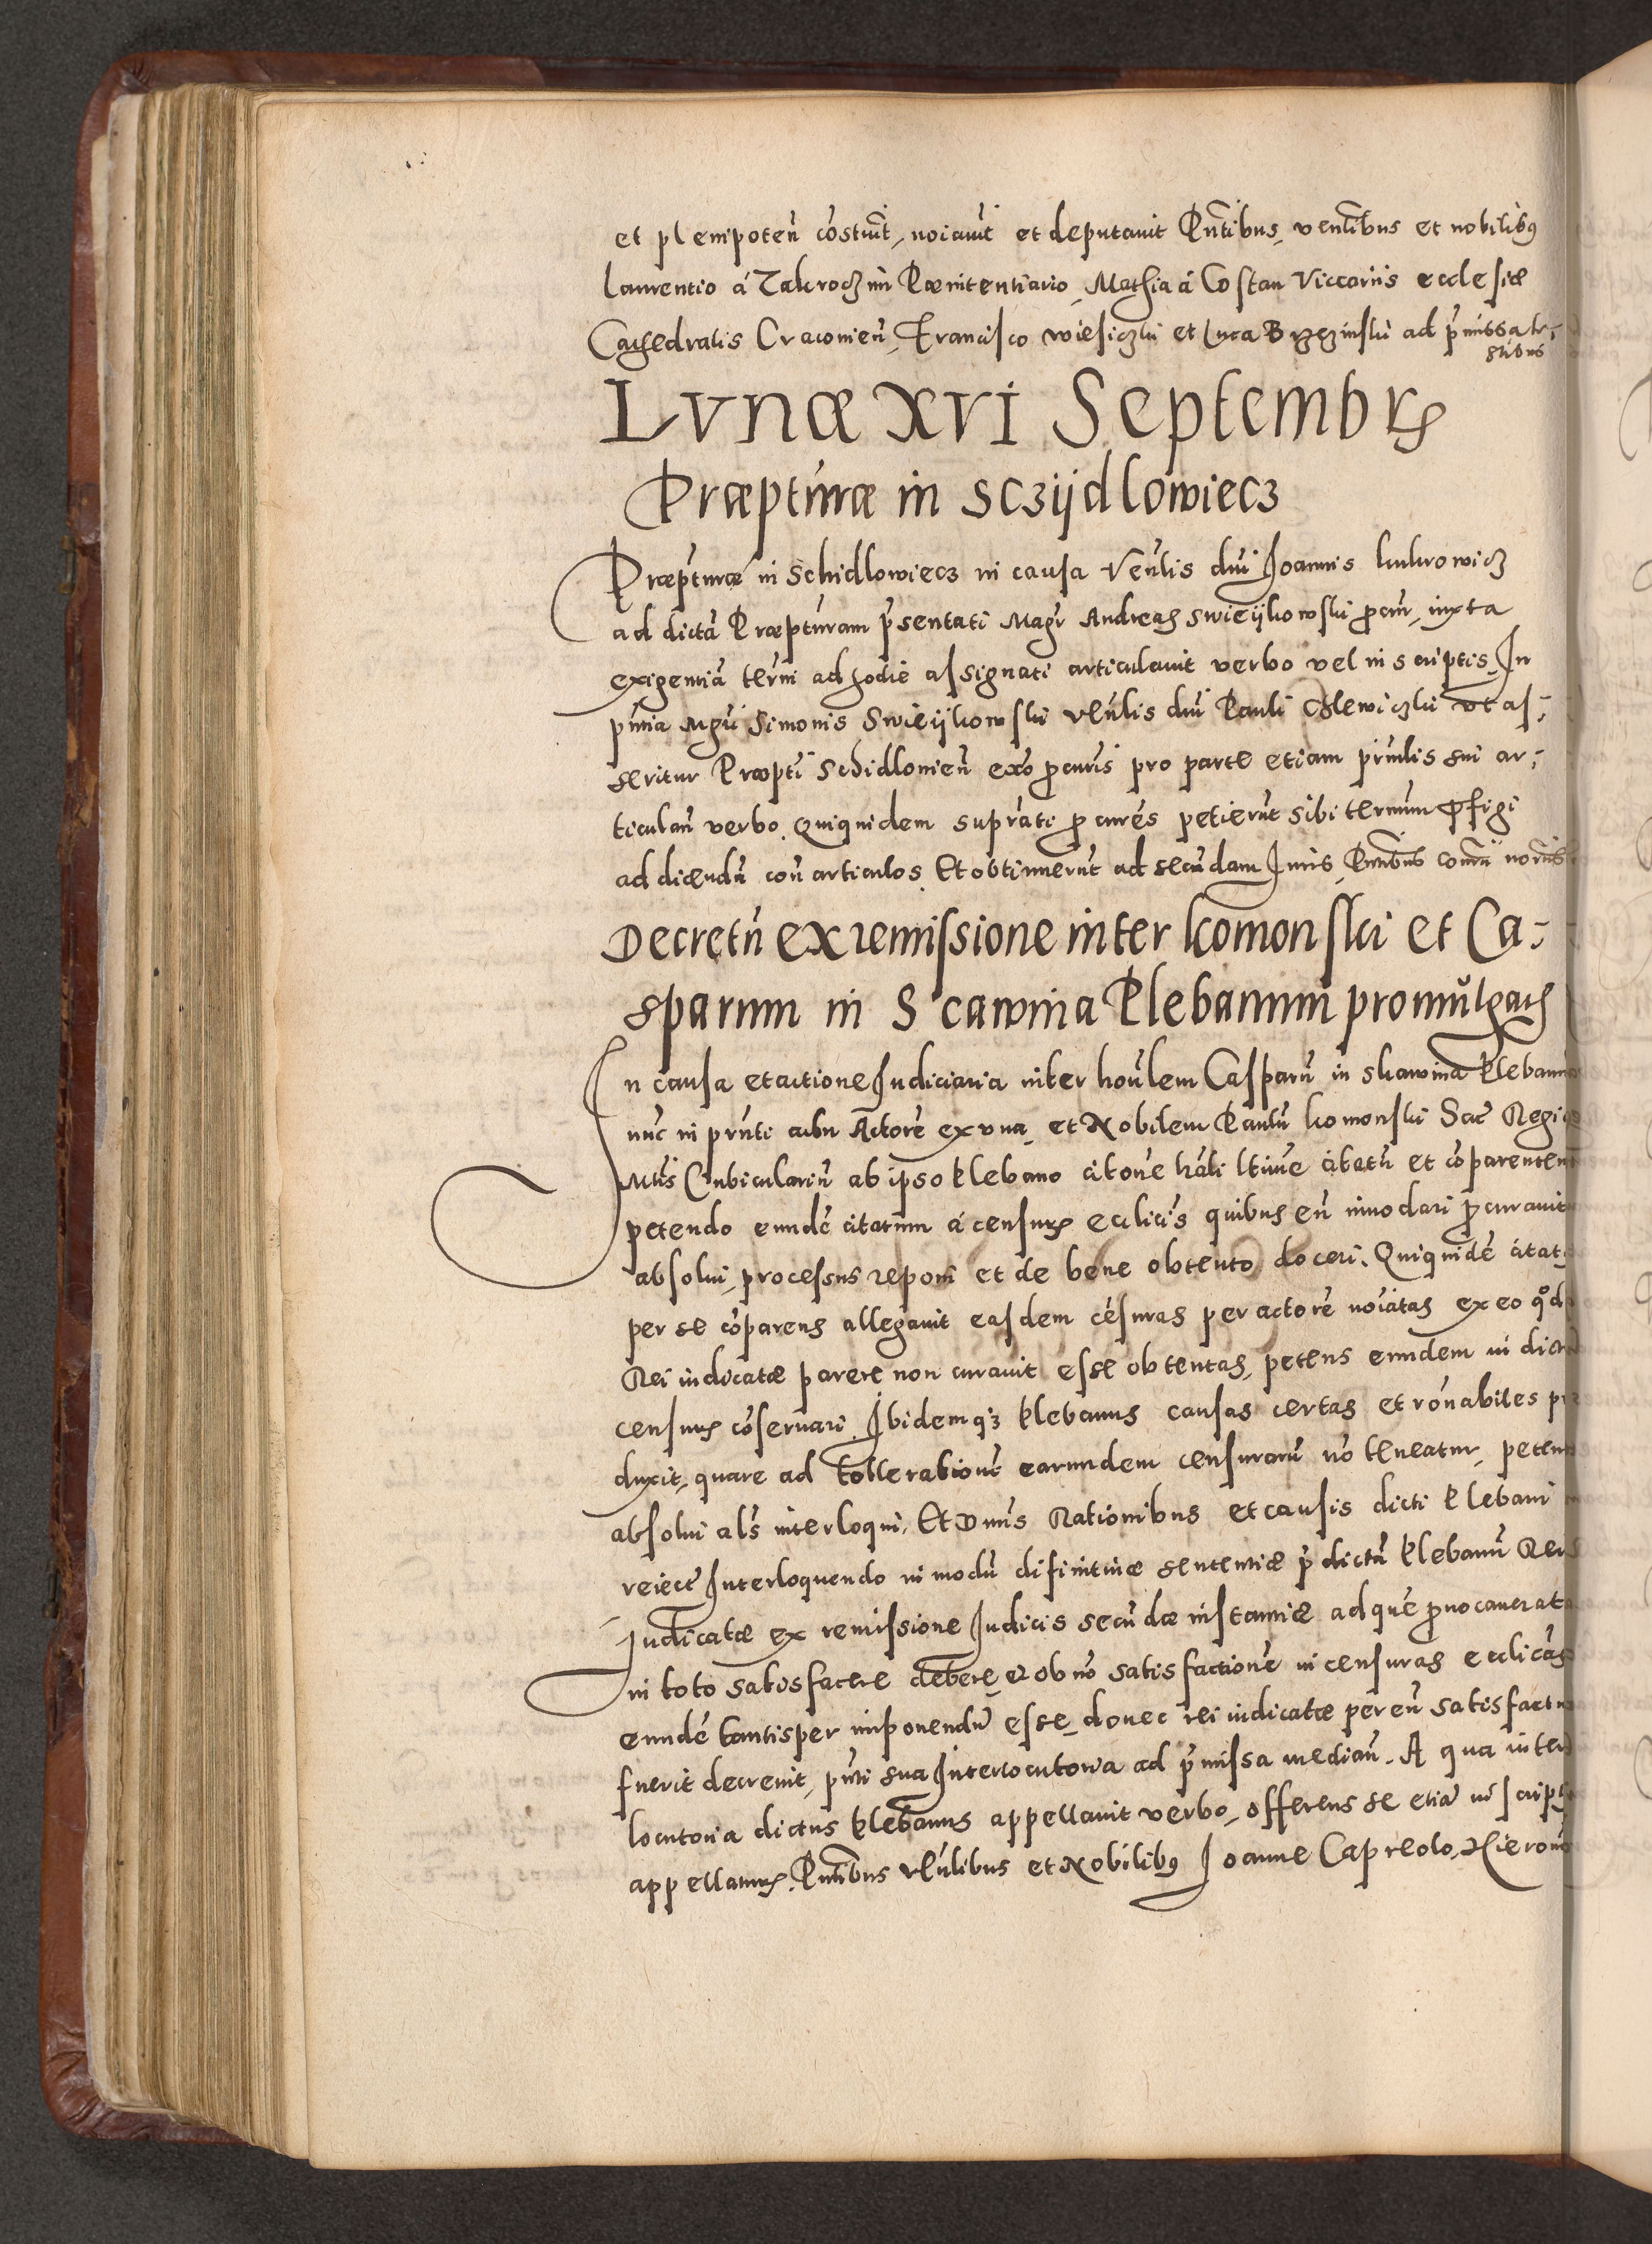 et plenipoteñ cõstuit, noiavit et deputavit Pntibus, venlibus et nobilibus
Laurentio á Zakroczim Pœnitentiario, Mathia á Costan Viccariis ecclesiæ
Cathedralis Cracovieñ, Francisco wiesiczki et Luca Brzezinski ad pmissa te-
stibus
Lvnæ XVI Septembrs
Præpturæ in Sczijdlowiecz
Præpturæ in Schidlowiecz in causa Venlis dni Joannis kukrowicz
ad dictã Præpturam psentati Magr Andreas Swieijkowski pcur, iuxta
exigentiã termi ad hodie assignati articulavit verbo vel in scriptis. In
pntia Mgri Simonis Swieijkowski venlis dni Pauli Chlewiczki ut as-
seritur Præpti Schidlovieñ exõ pcuris pro parte etiam prinlis sui ar-
ticulañ verbo. Quiquidem suprati pcures petierũt sibi termum pfigi
ad dicendũ coñ articulos. Et obtinuerũt ad secũdam Juris, Pntibus comũ noriis
Decretũ ex remissione inter komonski et Ca-
sparum in Scawina Plebanum promulgats
In causa et actione Judiciaria inter honlem Casparũ in skawina plebanũ
nũc in prnti citũ Actorẽ ex una, et Nobilem Paulũ komonski Sacr Regiæ
Mtis Cubiculariũ ab ipso plebano citone hali ltime citatũ et cõparentem
petendo eundẽ citatum á censurs eccliciis quibus eũ innodari pcuravit
absolvi, processus reponi et de bene obtento doceri. Quiquidẽ citats
per se cõparens allegavit easdem cẽsuras per actorẽ noiatas ex eo qd
Rei iudicatæ parere non curavit esse obtentas, petens eundem in dictis
censurs cõservari. Ibidemq3 plebanus causas certas et rõnabiles pro
duxit, quare ad tollerationẽ earundem censurarũ nõ teneatur, petens
absolvi als interloqui. Et Dnus Rationibus et causis dicti Plebani
reiectis Interloquendo in modũ difinitivæ sententiæ pdictũ plebanũ Rei
Judicatæ ex remissione Judicis secũdæ instantiæ ad quẽ pvocaverat
in toto satisfacere debere, et ob nõ satisfactionẽ in censuras ecclicas
eundẽ tantisper imponendũ esse, donec rei iudicatæ per eũ satisfactũ
fuerit decrevit, pnti sua Interlocutoria ad pmissa mediañ. A qua inter
locutoria dictus plebanus appellavit verbo, offerens se etiã in scripts
appellaturs. Pntibus venlibus et Nobilibus Joanne Capreolo, Hieronỹ